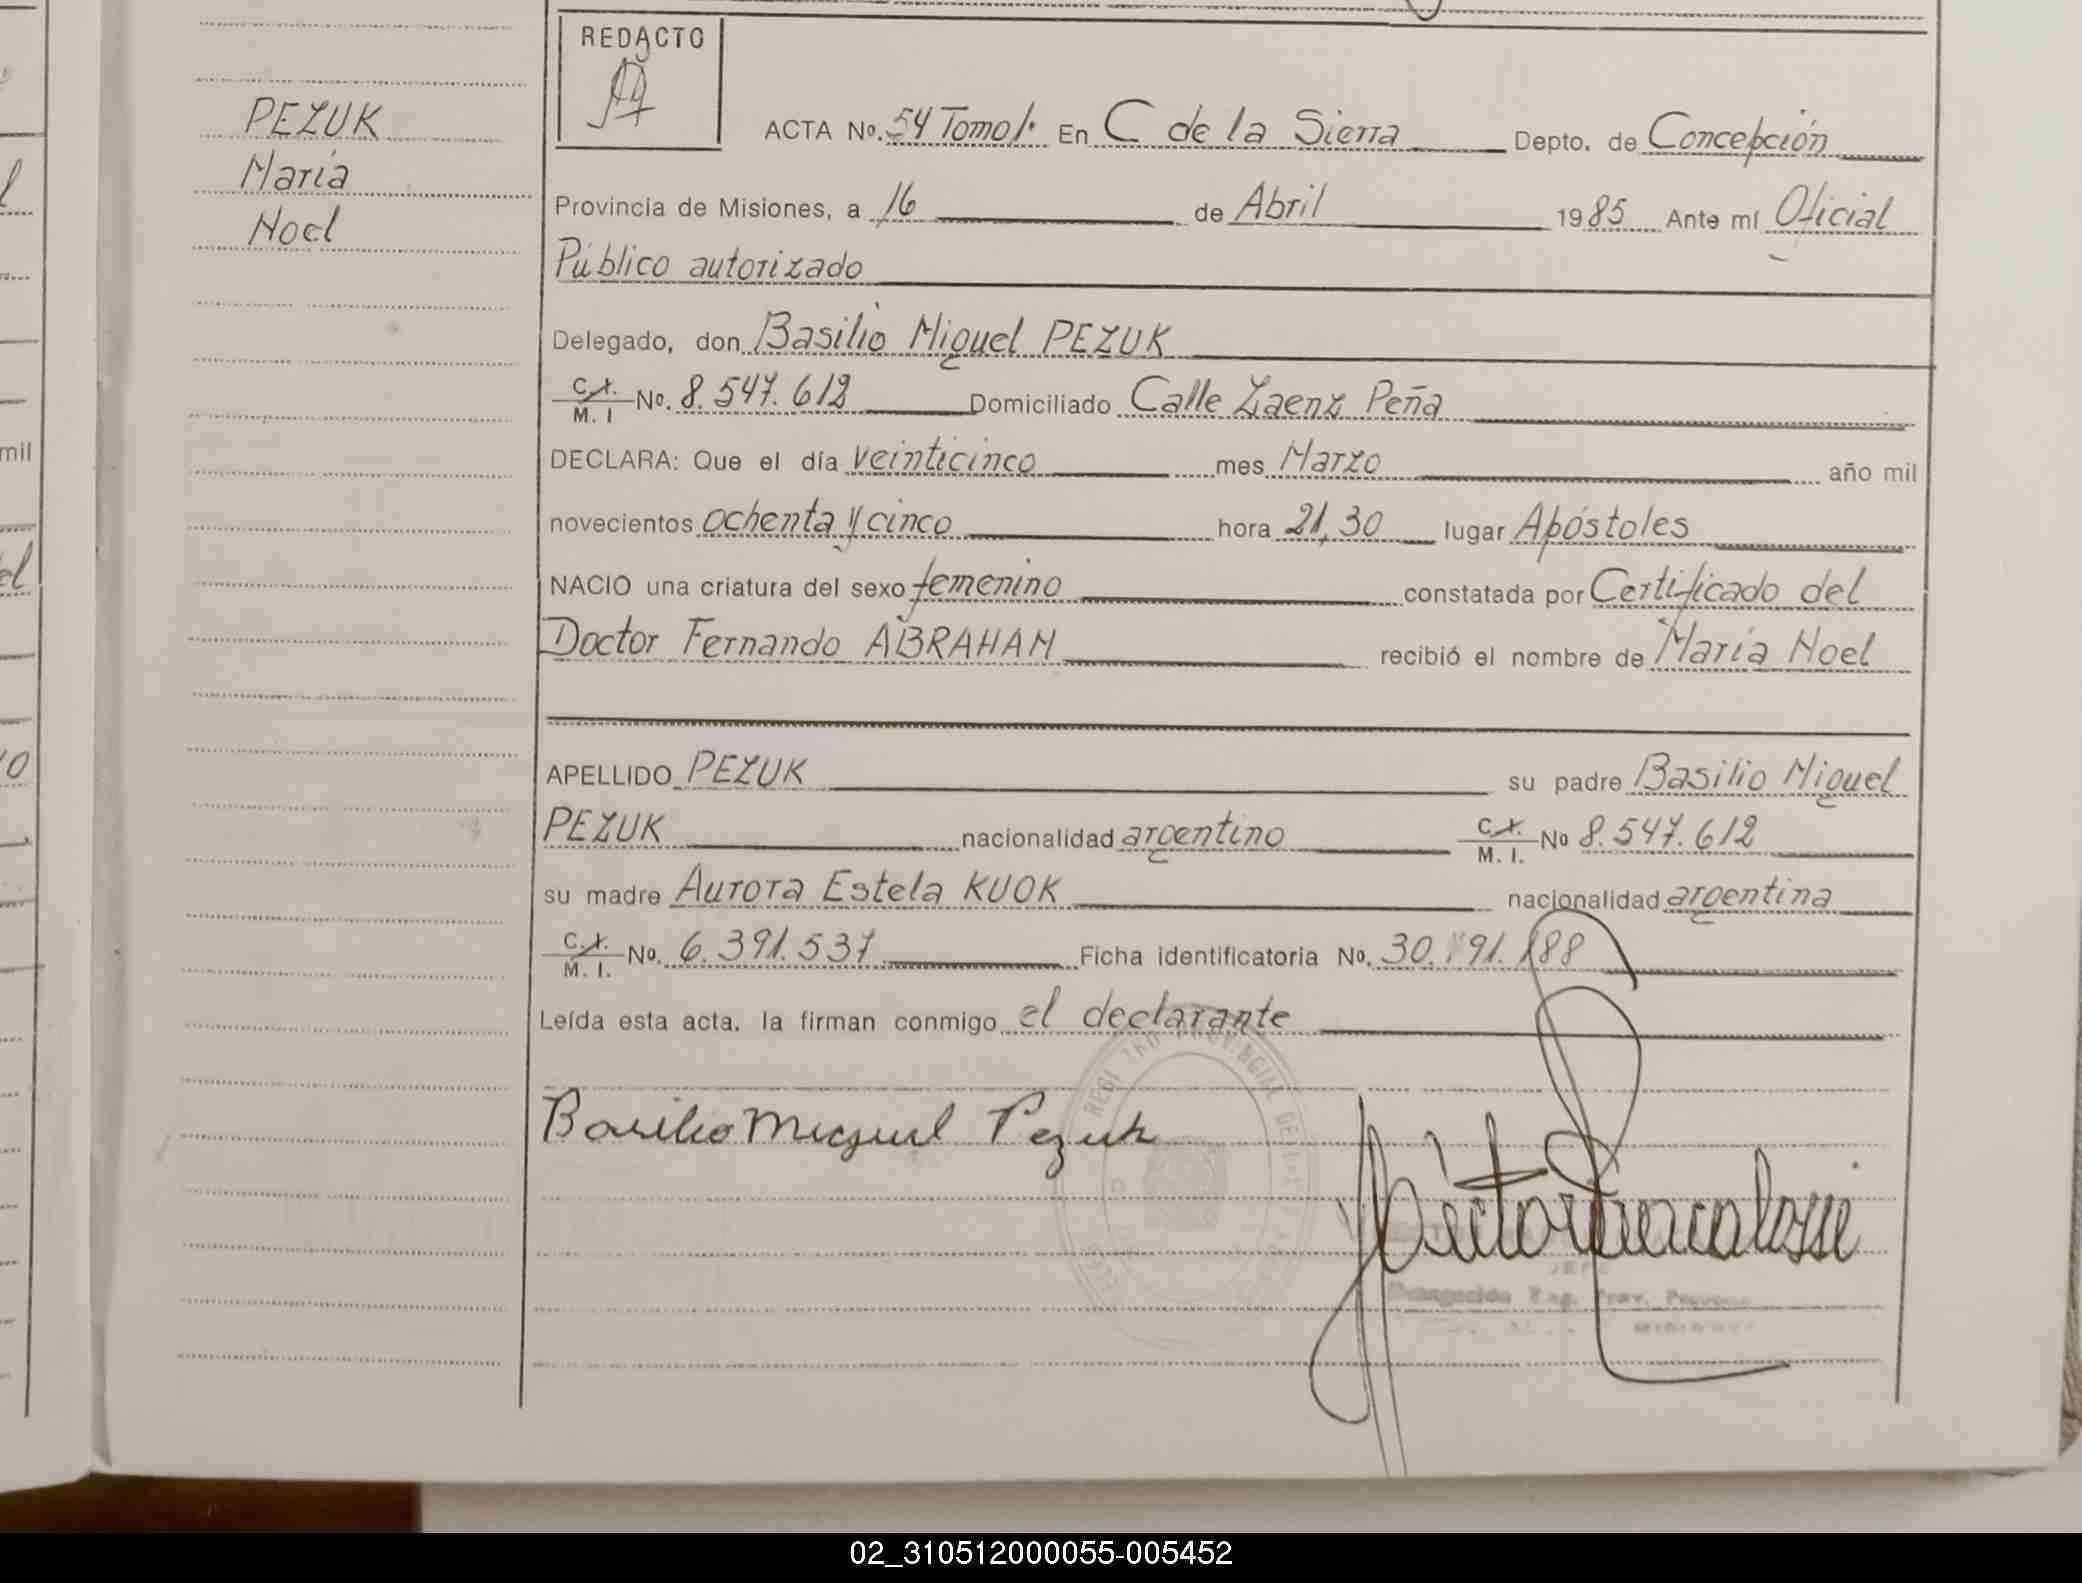 REDACTO
PEZUK
María
Noel
ACTA No. 54 Tomo I. En C de la Sierra Depto. de Concepción
Provincia de Misiones, a 16 de Abril 1985 Ante mí Oficial
Público autorizado
Delegado, don Basilio Miguel PEZUK
C.I. M. I No. 8.547.612 Domiciliado Calle Zaenz Peña
DECLARA: Que el día veinticinco mes Marzo año mil
novecientos ochenta y cinco hora 21,30 lugar Apóstoles
NACIO una criatura del sexo femenino constatada por Certificado del
Doctor Fernando ABRAHAM recibió el nombre de María Noel
APELLIDO PEZUK su padre Basilio Miguel
PEZUK nacionalidad argentino C.I. M. I. No 8.547.612
su madre Aurora Estela KUOK nacionalidad argentina
C.I. M. I. No. 6.391.537 Ficha identificatoria No.
Leída esta acta, la firman conmigo el declarante
Basilio Miguel Pezuk
02_310512000055-005452